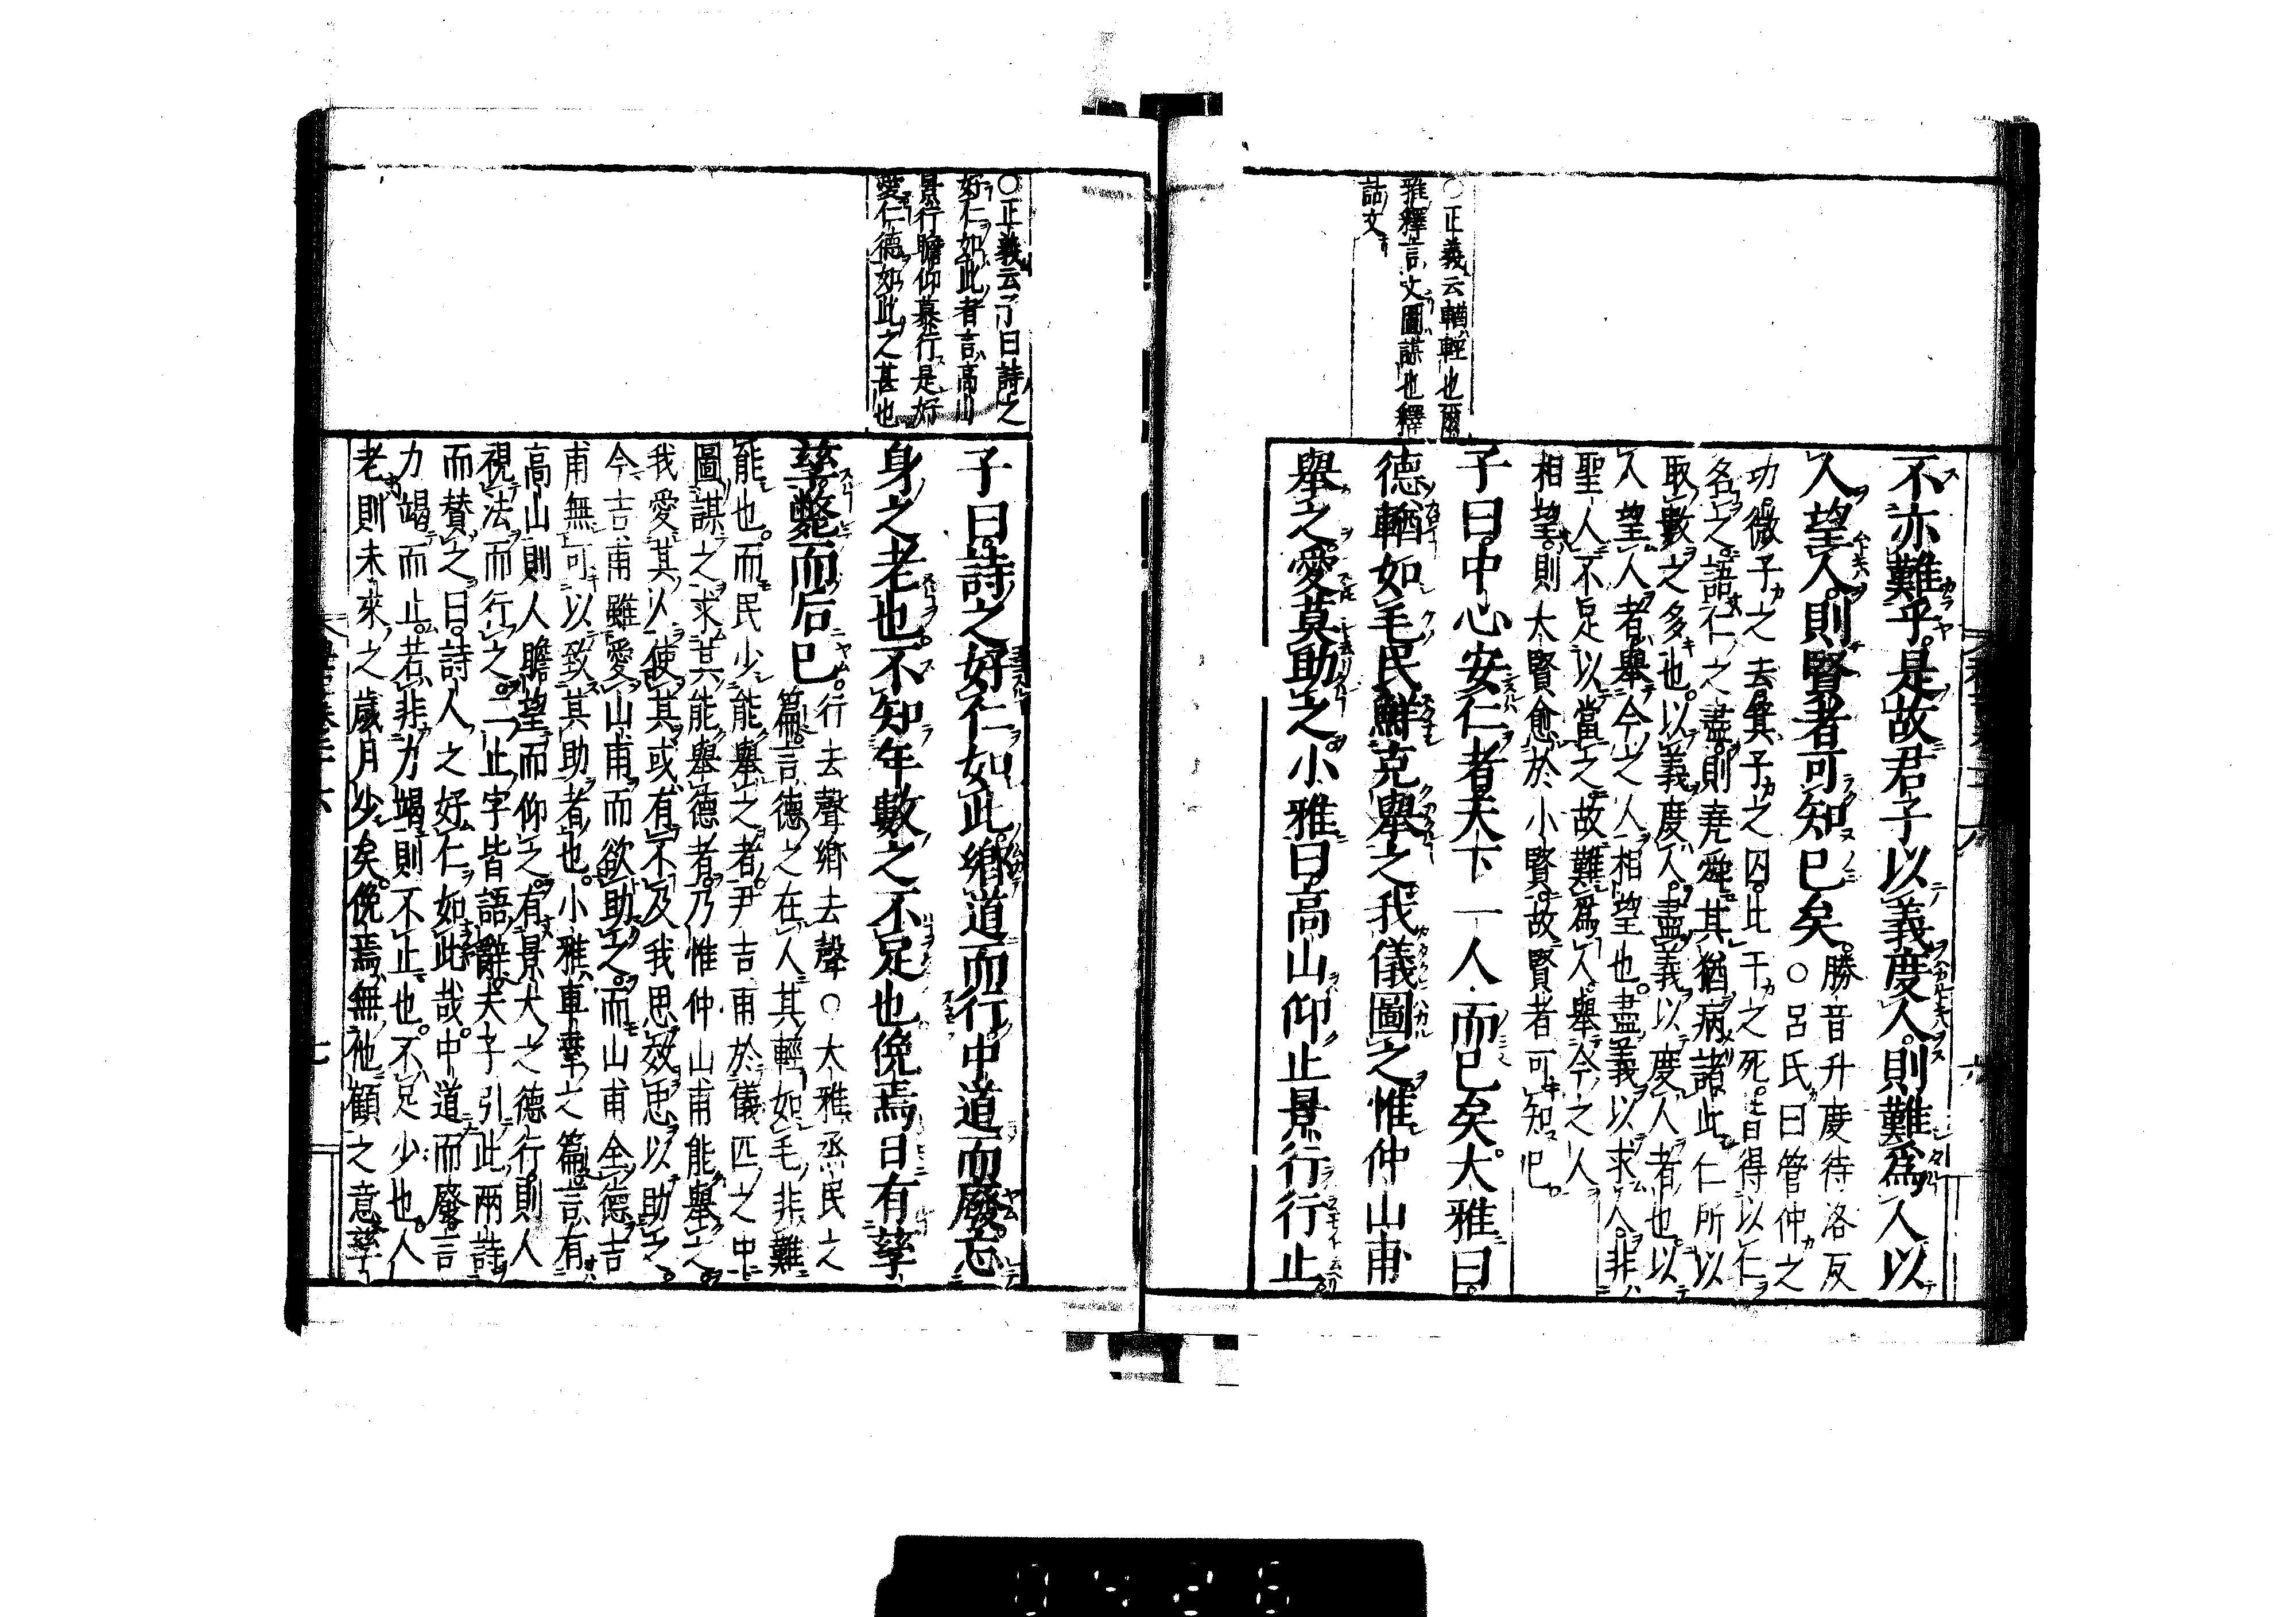 ○正義云輶輕也爾
雅釋言文圖謀也釋
詁文
不亦難乎是故君子以義度人則難爲人以
人望人則賢者可知已矣勝音升度待洛反
○呂氏曰管仲之
功微子之去箕子之囚比干之死皆得以仁
名之語仁之盡則堯舜其猶病諸此仁所以
取數之多也以義度人盡義以度人者也以
人望人者舉今之人相望也盡義以求人非
聖人不足以當之故難爲人舉今之人
相望則大賢愈於小賢故賢者可知已
子曰中心安仁者天下一人而已矣大雅曰
德輶如毛民鮮克舉之我儀圖之惟仲山甫
舉之愛莫助之小雅曰高山仰止景行行止
○正義云子曰詩之
好仁如此者言高山
景行瞻仰慕行是好
愛仁德如此之甚也
子曰詩之好仁如此鄉道而行中道而廢忘
身之老也不知年數之不足也俛焉日有孳
孳斃而后已
行去聲鄉去聲○大雅烝民之
篇言德之在人其輕如毛非難
能也而民少能舉之者尹吉甫於儀匹之中
圖謀之求其能舉德者乃惟仲山甫能舉之
我愛其人使其或有不及我思效忠以助之
今吉甫雖愛山甫而欲助之而山甫全德吉
甫無可以致其助者也小雅車舝之篇言有
高山則人瞻望而仰之有景大之德行則人
視法而行之二止字皆語辭夫子引此兩詩
而贊之曰詩人之好仁如此哉中道而廢言
力竭而止若非力竭則不止也不足少也人
老則未來之歲月少矣俛焉無他顧之意孳
七